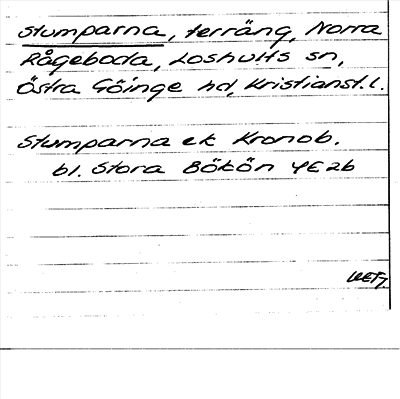 Stumparna, terräng, Norra
Rågeboda, Loshults sn,
Östra Göinge hd, Kristianst. l.
Stumparna ek Kronob.
bl. Stora Bökön 4E2b